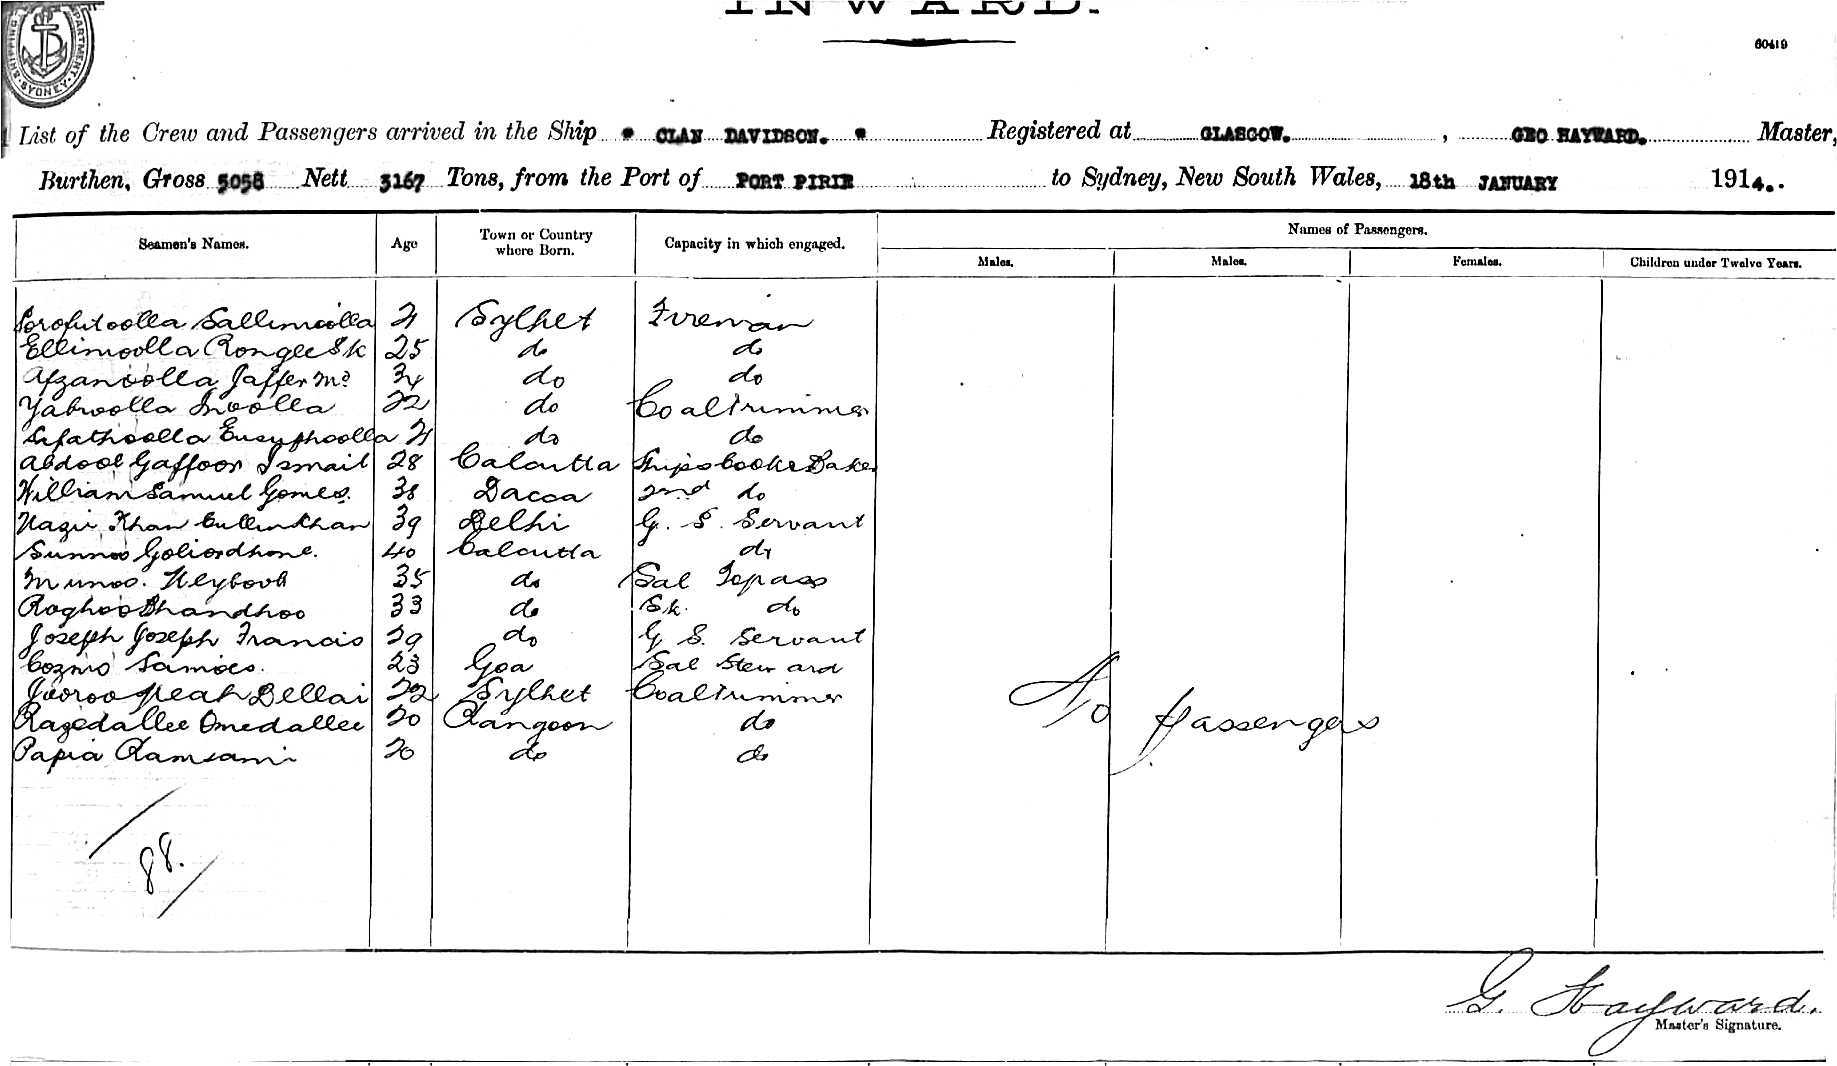 INWARD.
SHIPPING DEPARTMENT SYDNEY
60419
List of the Crew and Passengers arrived in the Ship " CLAN DAVIDSON. " Registered at GLASGOW. , GEO HAYWARD. Master,
Burthen, Gross 5058 Nett 3167 Tons, from the Port of PORT PIRIE to Sydney, New South Wales, 18th JANUARY 1914.
Seamen's Names. Age Town or Country where Born. Capacity in which engaged. Names of Passengers.
Males. Males. Females. Children under Twelve Years.
Sorofutoolla Sallimoolla 21 Sylhet Fireman
Ellimoolla Rongee Sk 25 do do
Afzanoolla Jaffer Md 34 do do
Yabroolla Inoolla 22 do Coaltrimmer
Sifathoolla Eusuphoolla 21 do do
Abdool Gaffoor Ismail 28 Calcutta Ships cook & Baker
William Samuel Gomes. 38 Dacca 2nd do
Nazir Khan Cullenkhan 39 Delhi G. S. Servant
Sunnoo Goliordhone. 40 Calcutta do
Munoo. 35 do Sal Topass
Roghoo Bhandhoo 33 do Sk. do
Joseph Joseph Francis 29 do G S. Servant
Cozmo 23 Goa Sal Steward
Dellai 22 Sylhet Coaltrimmer
Razedallee Omedallee 20 Rangoon do
Papia Ramsami 20 do do
No Passengers
88.
G. Hayward.
Master's Signature.